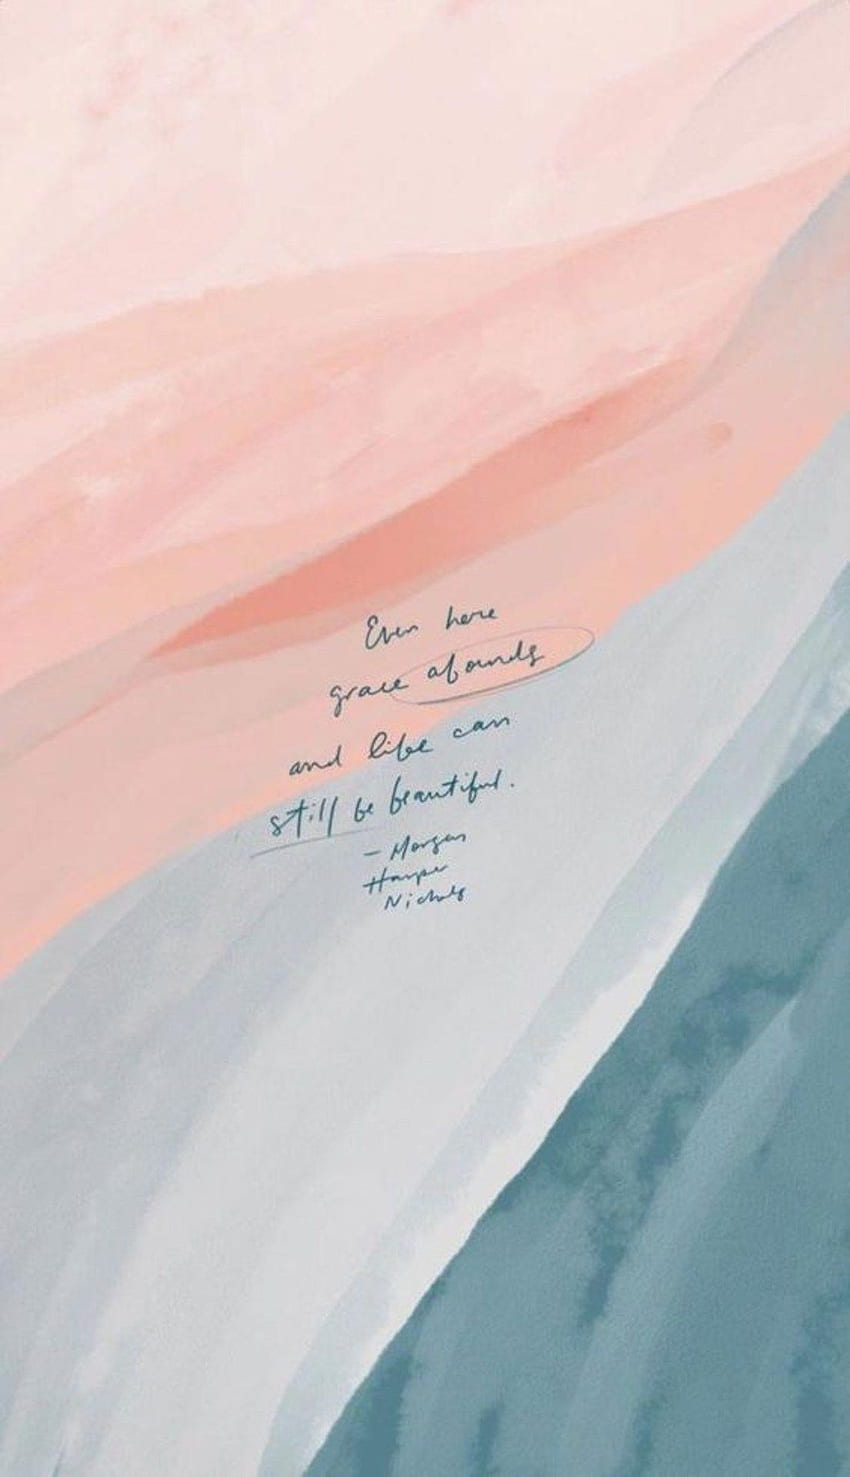 Even here
grace abounds
and life can
still be beautiful.
- Morgan
Harper
Nichols